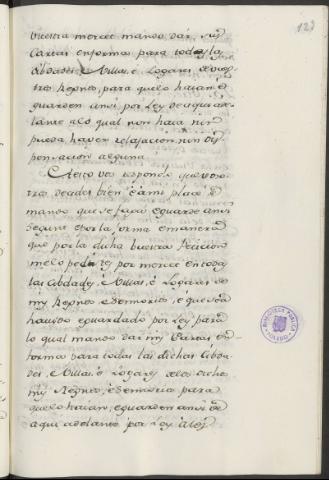 127
vuestra merce mando dar sus
Cartas en forma para todas las
cibdades, e Villas, e Logares de vues
tros Regnos, para que lo haian, e
guarden ansi, por Ley de aqui ade
lante a lo qual non haia nin
pueda haver relajacion, nin dis
pensacion alguna.
A esto vos respondo que vos
otros decides bien e a mi place e
mando que se faga e guarde ansi
segun e por la forma e manera
que por la dicha vuestra Peticion
me lo pedistes por merce en todas
las Cibdades, e Villas, e Logares de
mis Regnos e Señorios, e que sea
havido e guardado por Ley para
lo qual mando dar mis Cartas en
forma para todas las dichas Cibda
des e Villas, e Logares de los dichos
mis Regnos, e Señorios para
que lo haian, e guarden ansi de
aqui adelante por Ley a lo
BIBLIOTECA PUBLICA
TOLEDO